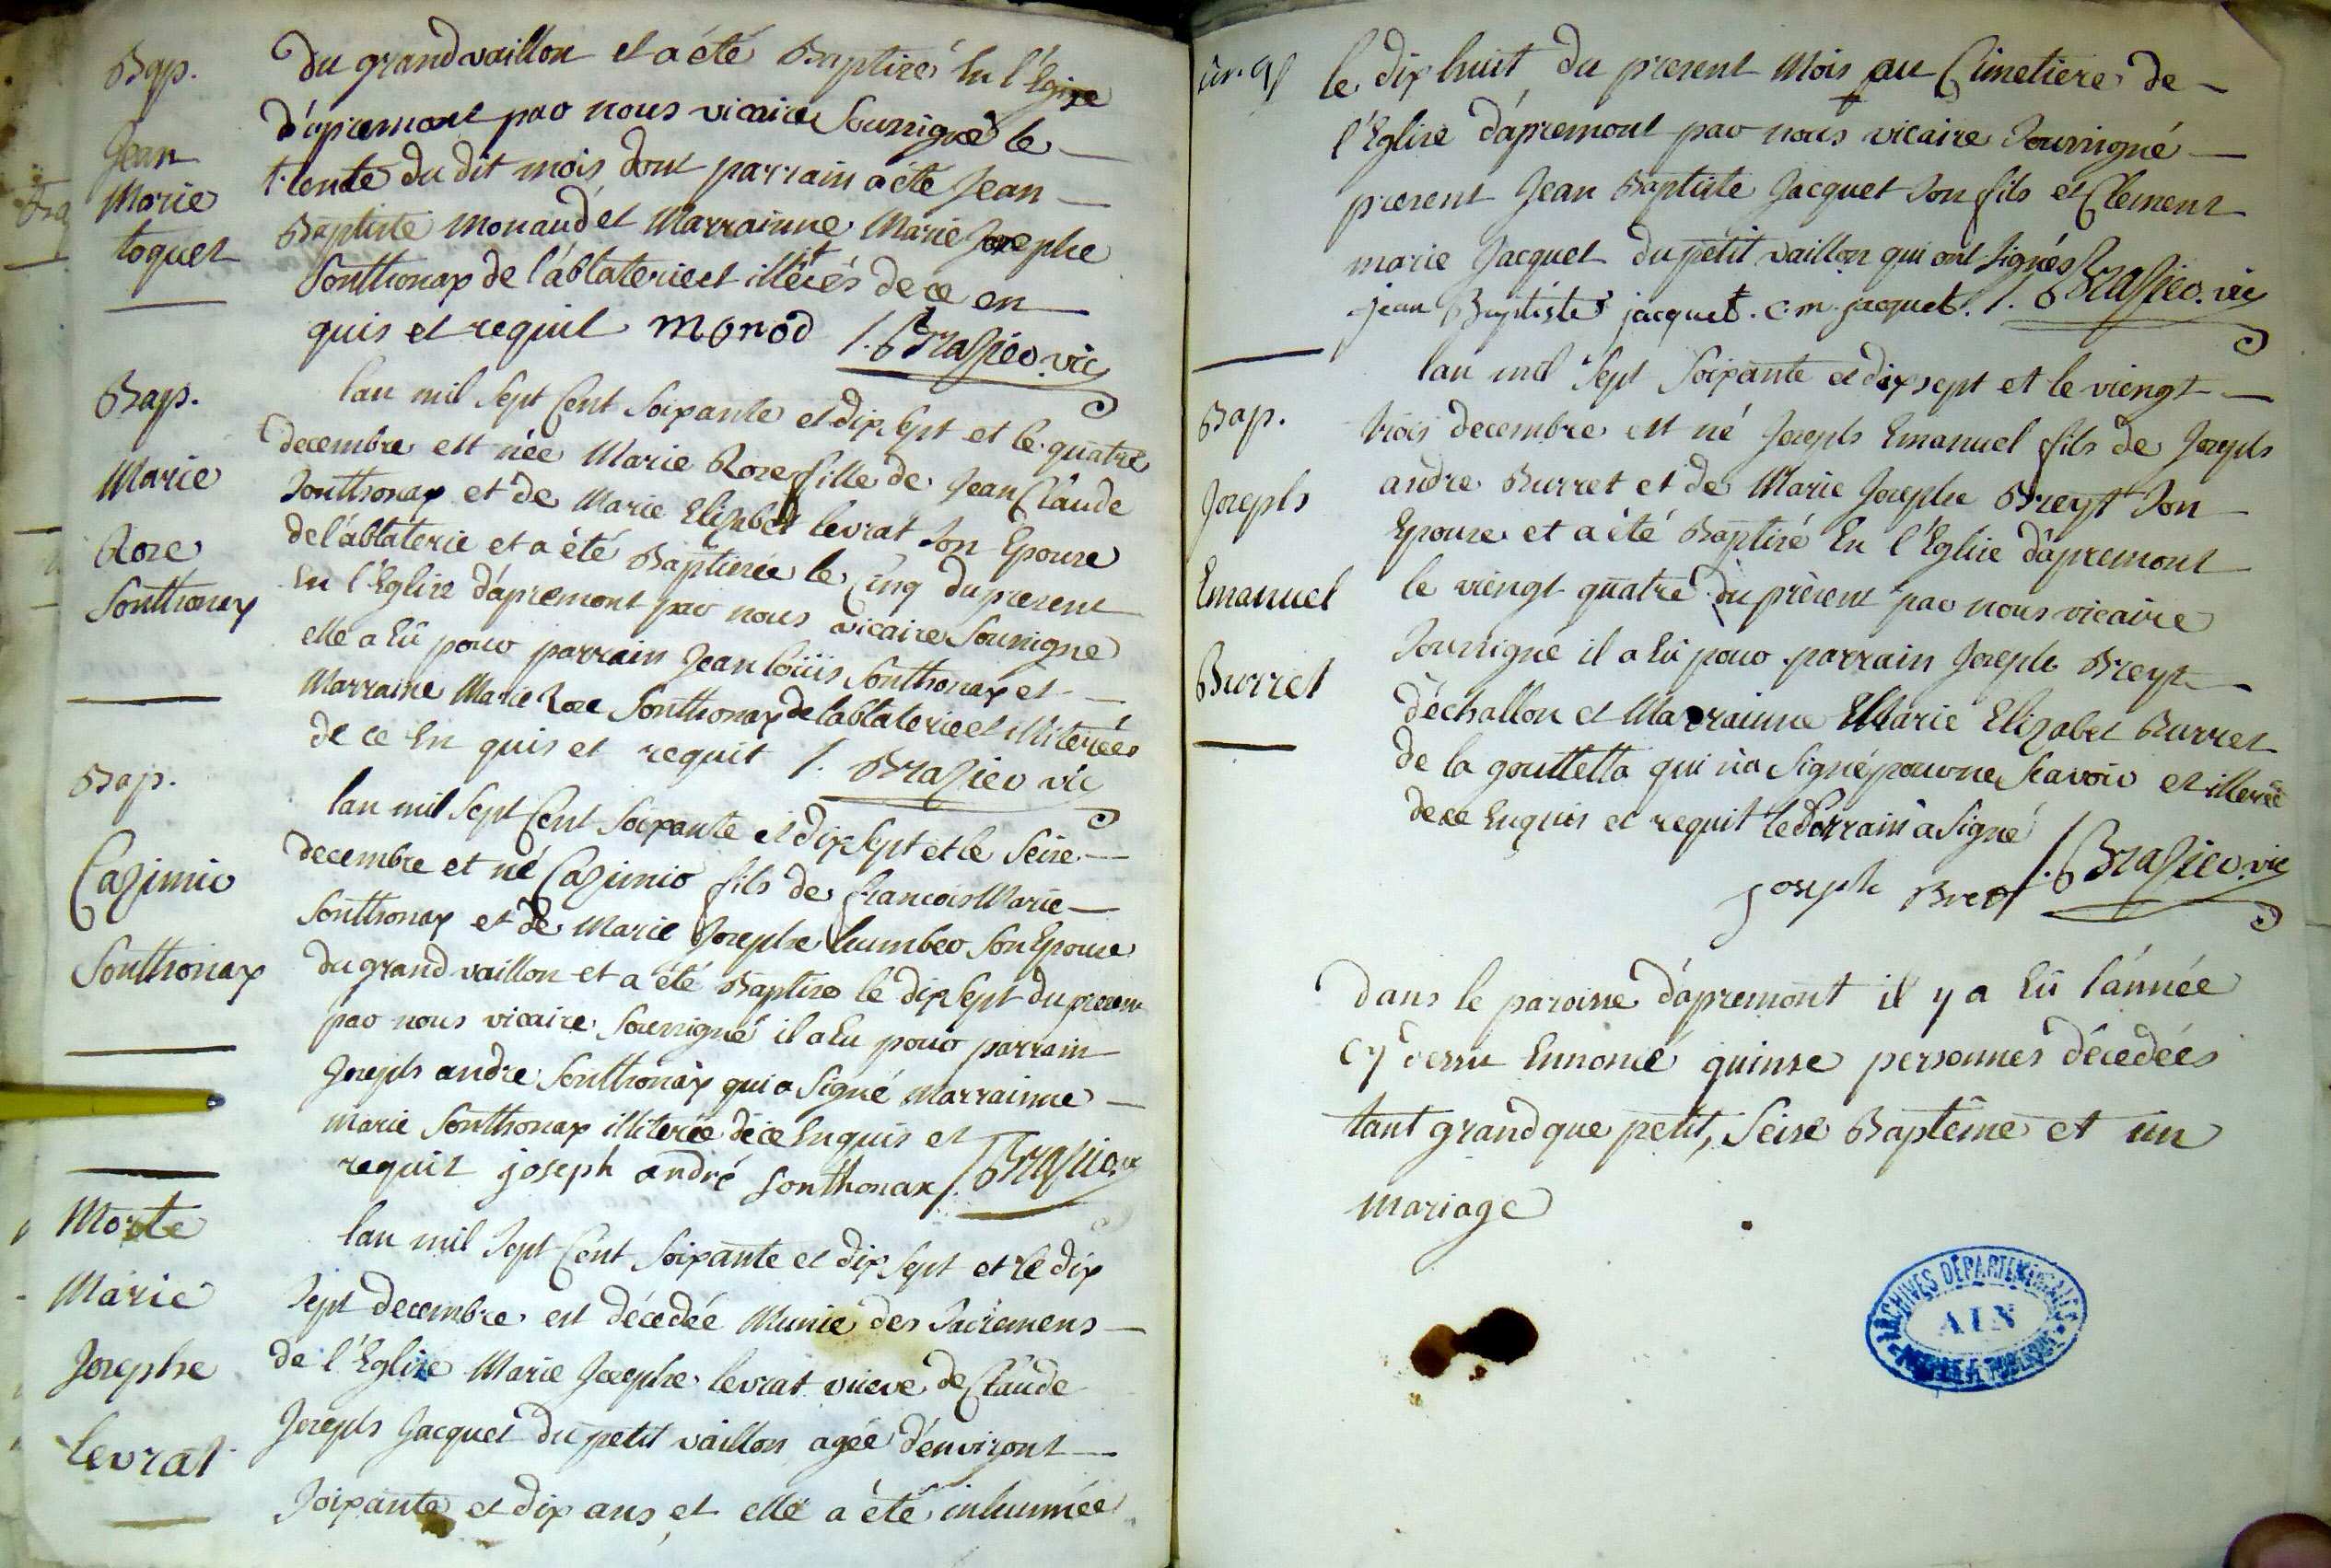 Bap.
Jean
Marie
toquet
du grand vaillon et a été Baptizé En l'Eglize
d'apremont par nous vicaire Soussigné le
trente du dit mois dont parrain a été Jean
Baptiste monaud et Marrainne Marie Josephe
Sonthonax de l'ablaterie et illétérés de ce en
quis et requit monod J. Brasier vic
Bap.
Marie
Roze
Sonthonax
lan mil Sept Cent Soixante et dix Sept et le quatre
decembre est née Marie Roze fille de Jean Claude
Sonthonax et de Marie Elizabet levrat Son Epouze
de l'ablaterie et a été Baptizée le Cinq du present
En l'Eglize d'apremont par nous vicaire Soussigné
elle a Eü pour parrain Jean loüis Sonthonax et
Marraine Marie Roze Sonthonax de lablaterie et illiterées
de ce En quis et requit J. Brasier vic
Bap.
Cazimir
Sonthonax
lan mil Sept Cent Soixante et dix Sept et le Seize
decembre et né Cazimir fils de francois Marie
Sonthonax et de Marie Josephe humber Son Epouze
du grand vaillon et a été Baptizé le dix Sept du present
par nous vicaire Soussigné il a Eu pour parrain
Joseph andre Sonthonax qui a Signé marrainne
marie Sonthonax illiterée de ce Enquis et
requit joseph andré sonthonax J. Brasier vic
Morte
Marie
Josephe
levrat
lan mil Sept Cent Soixante et dix Sept et le dix
Sept decembre est décedée Munie des Sacremens
de l'Eglize Marie Josephe levrat vueve de Claude
Joseph Jacquet du petit vaillon agée d'environt
Soixante et dix ans et elle a été inhumée
le dix huit du present Mois au Cimetiere de
l'Eglize d'apremont par nous vicaire Soussigné
present Jean Baptiste Jacquet Son fils et Clement
marie Jacquet du petit vaillon qui ont Signés
jean Baptiste jacquet. c. m. jacquet. J. Brasier. vic
Bap.
Joseph
Emanuel
Burret
lan mil Sept Soixante et dix sept et le viengt
trois decembre est né Joseph Emanuel fils de Joseph
andre Burret et de Marie Josephe Breyt Son
Epouze et a été Baptizé En l'Eglize d'apremont
le viengt quatre du présent par nous vicaire
Soussigné il a Eü pour parrain Joseph Breyt
d'échallon et Marrainne Marie Elizabet Burret
de la gouttetta qui n'a Signé pour ne Scavoir et illeree
de ce Enquis et requit le Parrain a Signé
joseph Bret J. Brasier vic
dans le paroisse d'apremont il y a Eü l'année
cy dessu Ennoncé quinse personnes décedées
tant grand que petit, Seise Baptême et un
mariage
ARCHIVES DÉPARTEMENTALES
AIN